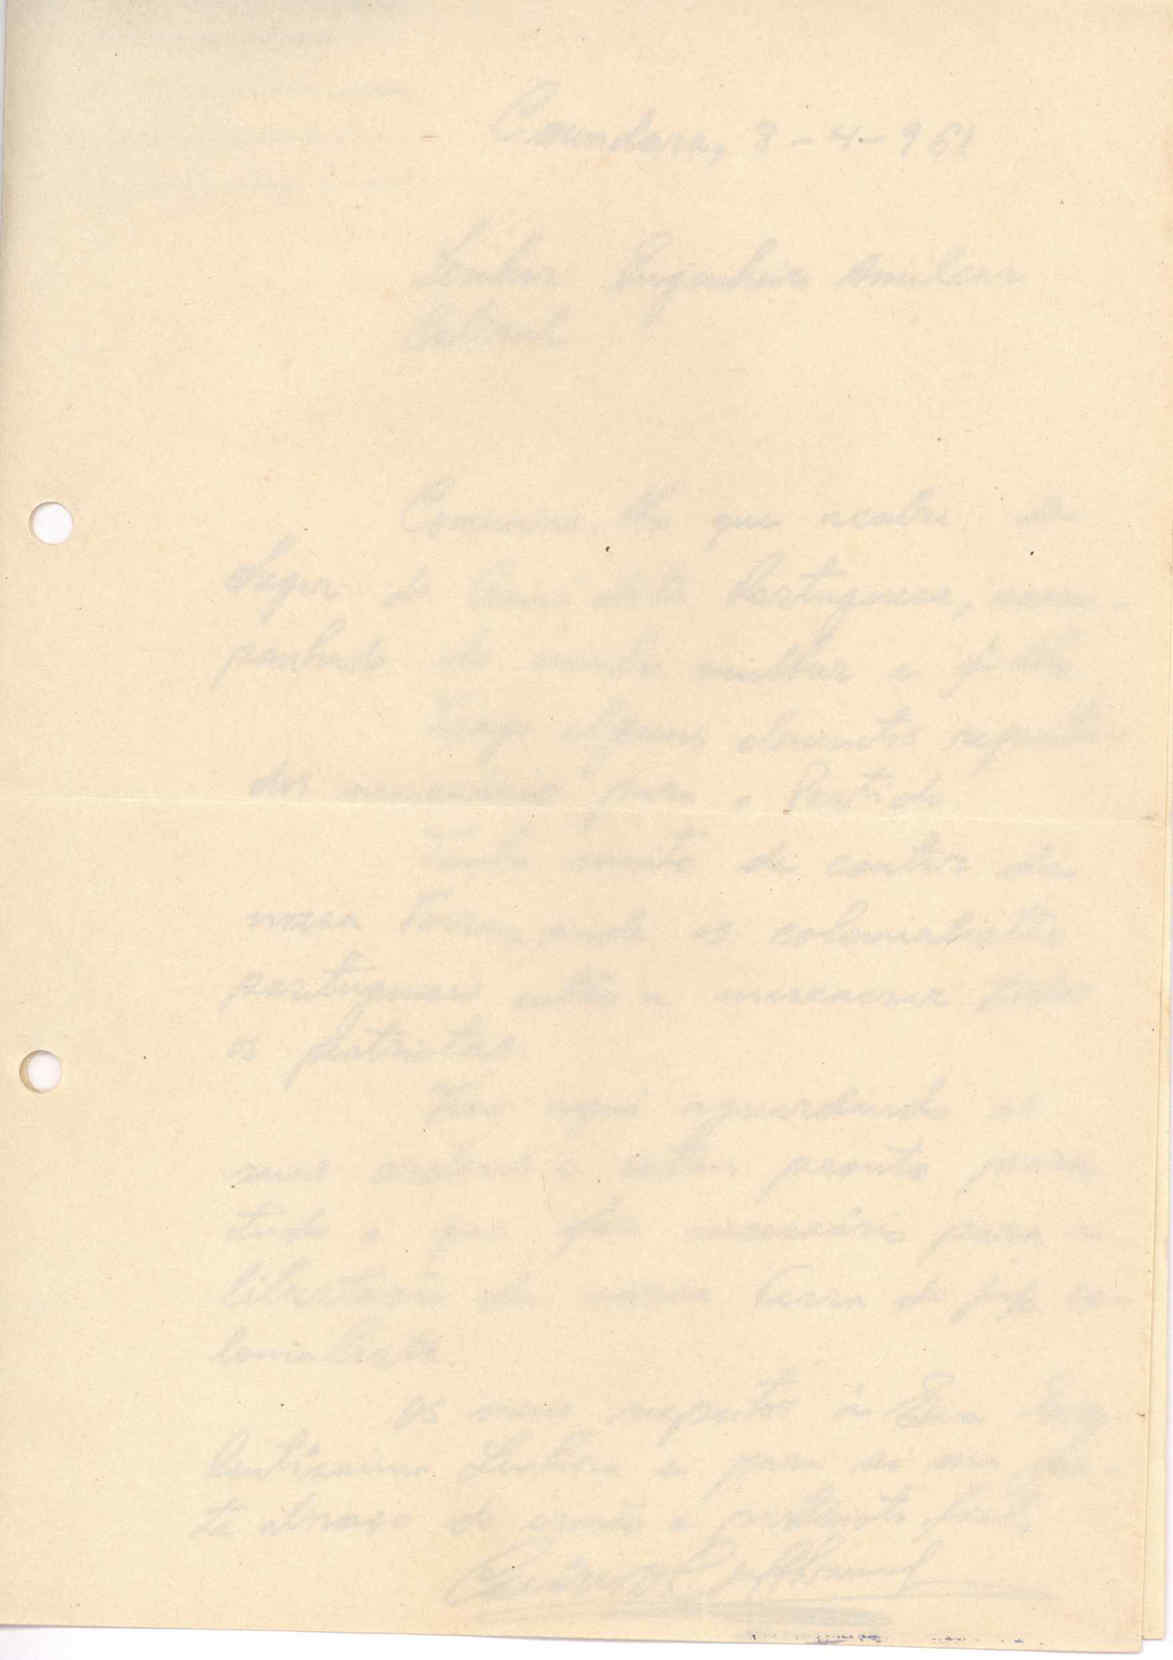 Coundara, 8-4-961
Senhor Engenheiro Amilcar
Cabral
Comunico, lhe que acabei de
chegar da Guiné dita Portuguesa, acom-
panhado de minha mulher e filho
Trago alguns elementos
necessários para o Partido
Tenho muito de contar da
nossa Terra, onde os colonialistas
portugueses estão a massacrar todos
os patriotas.
Fico aqui aguardando as
suas ordens e estou pronto para
tudo o que fôr necessário para a
libertação da nossa Terra do jugo co-
lonialista.
Os meus respeitos à Sua
Senhora e para si um
abraço do irmão e patriota